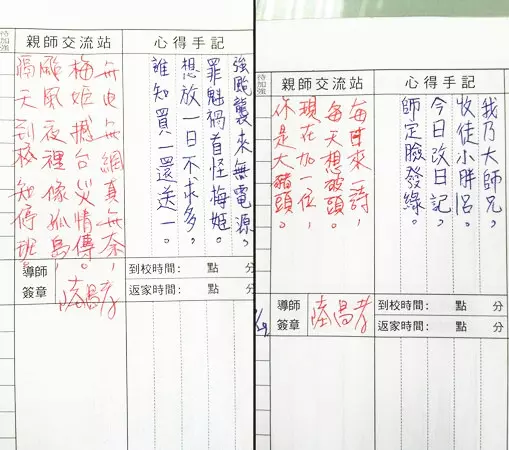 待加強
心得手記
強颱襲來無電源，
罪魁禍首怪梅姬。
想放一日不求多，
誰知買一還送一。
親師交流站
無電無網真無奈，
梅姬撼台災情傳。
颱風夜裡像孤島，
隔天到校知停班。
導師
簽章
陸昌孝
到校時間： 點 分
返家時間： 點 分
待加強
心得手記
我乃大師兄，
收徒小胖呂。
今日改日記，
師定臉發綠。
親師交流站
每日來一詩，
每天想破頭。
現在加一位，
你是大豬頭。
導師
簽章
陸昌孝
到校時間： 點 分
返家時間： 點 分